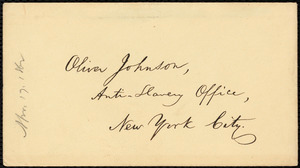 Oliver Johnson,
Anti-Slavery Office,
New York City.